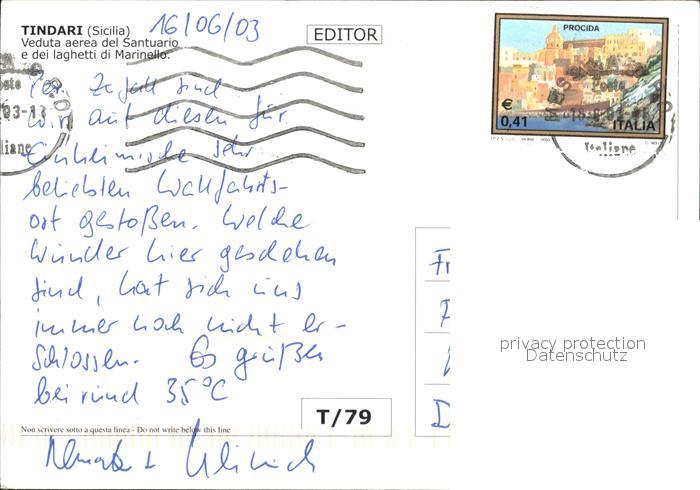 TINDARI (Sicilia)
Veduta aerea del Santuario
e dei laghetti di Marinello.
16/06/03
EDITOR
Per Zufall sind
wir auf diesen für
Einheimische sehr
beliebten Wallfahrts-
ort gestoßen. Welche
Wunder hier geschehen
sind, hat sich uns
immer noch nicht er-
schlossen. Es grüßen
bei rund 35°C
Non scrivere sotto a questa linea - Do not write below this line
Renate +
T/79
PROCIDA
€
0,41
ITALIA
Poste
Italiane
privacy protection
Datenschutz